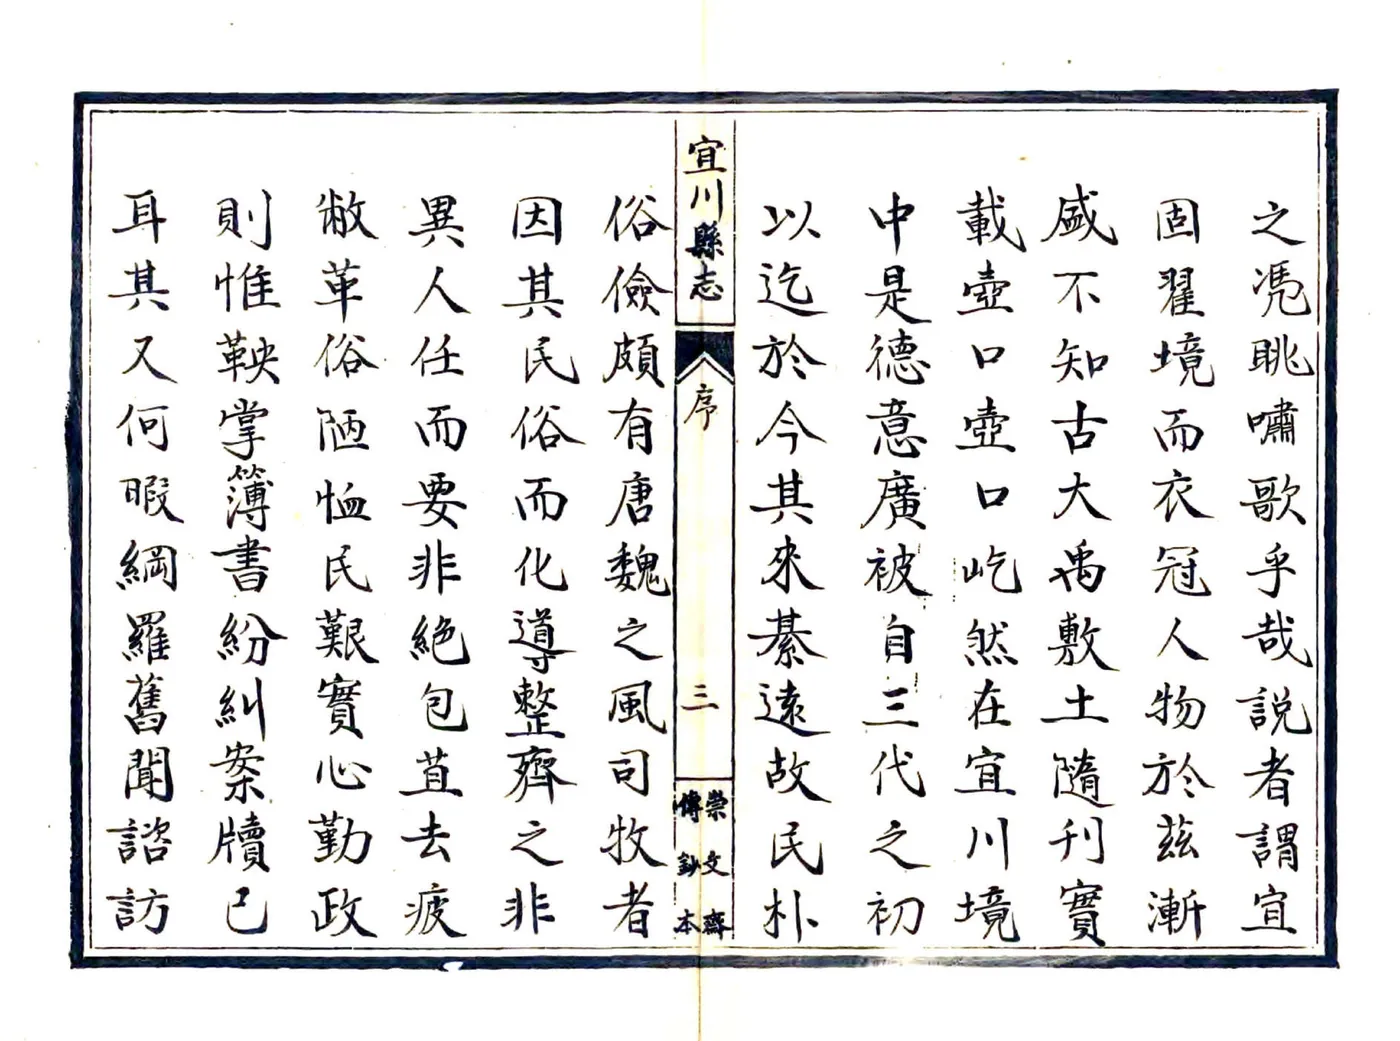 之凴眺嘯歌乎哉説者謂宜
固翟境而衣冠人物於茲漸
盛不知古大禹敷土隨刊實
載壺口壺口屹然在宜川境
中是德意廣被自三代之初
以迄於今其來綦遠故民朴
宜川縣志
序
三
崇文齋
傳鈔本
俗儉頗有唐魏之風司牧者
因其民俗而化導整齊之非
異人任而要非絶包苴去疲
敝革俗陋恤民艱實心勤政
則惟鞅掌簿書紛糾案牘已
耳其又何暇綱羅舊聞諮訪